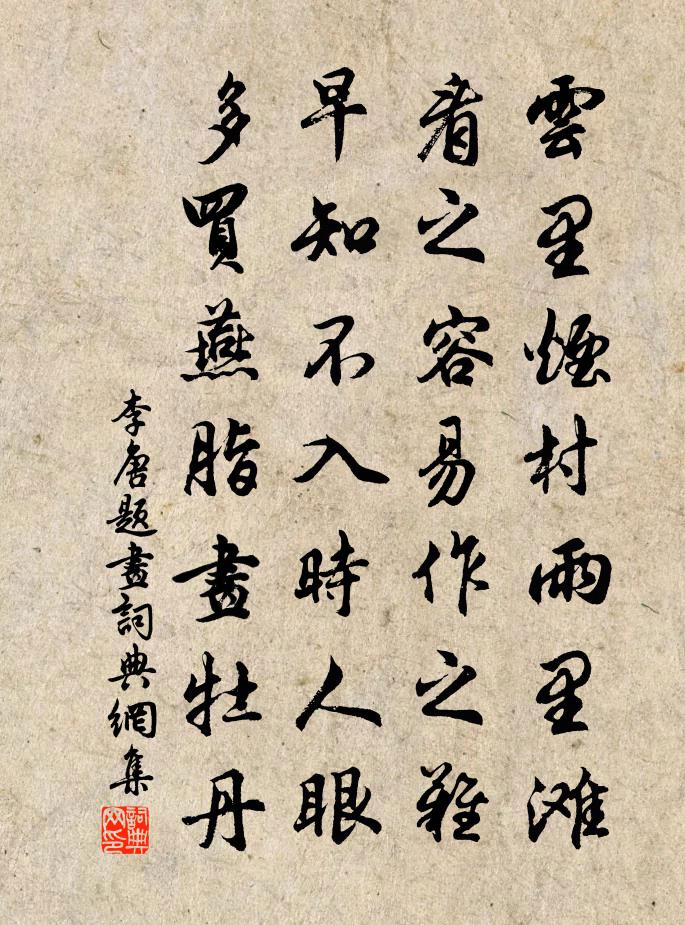 雲里煙村雨里滩
看之容易作之難
早知不入時人眼
多買燕脂畫牡丹
李唐題畫詞典網集
詞典网印